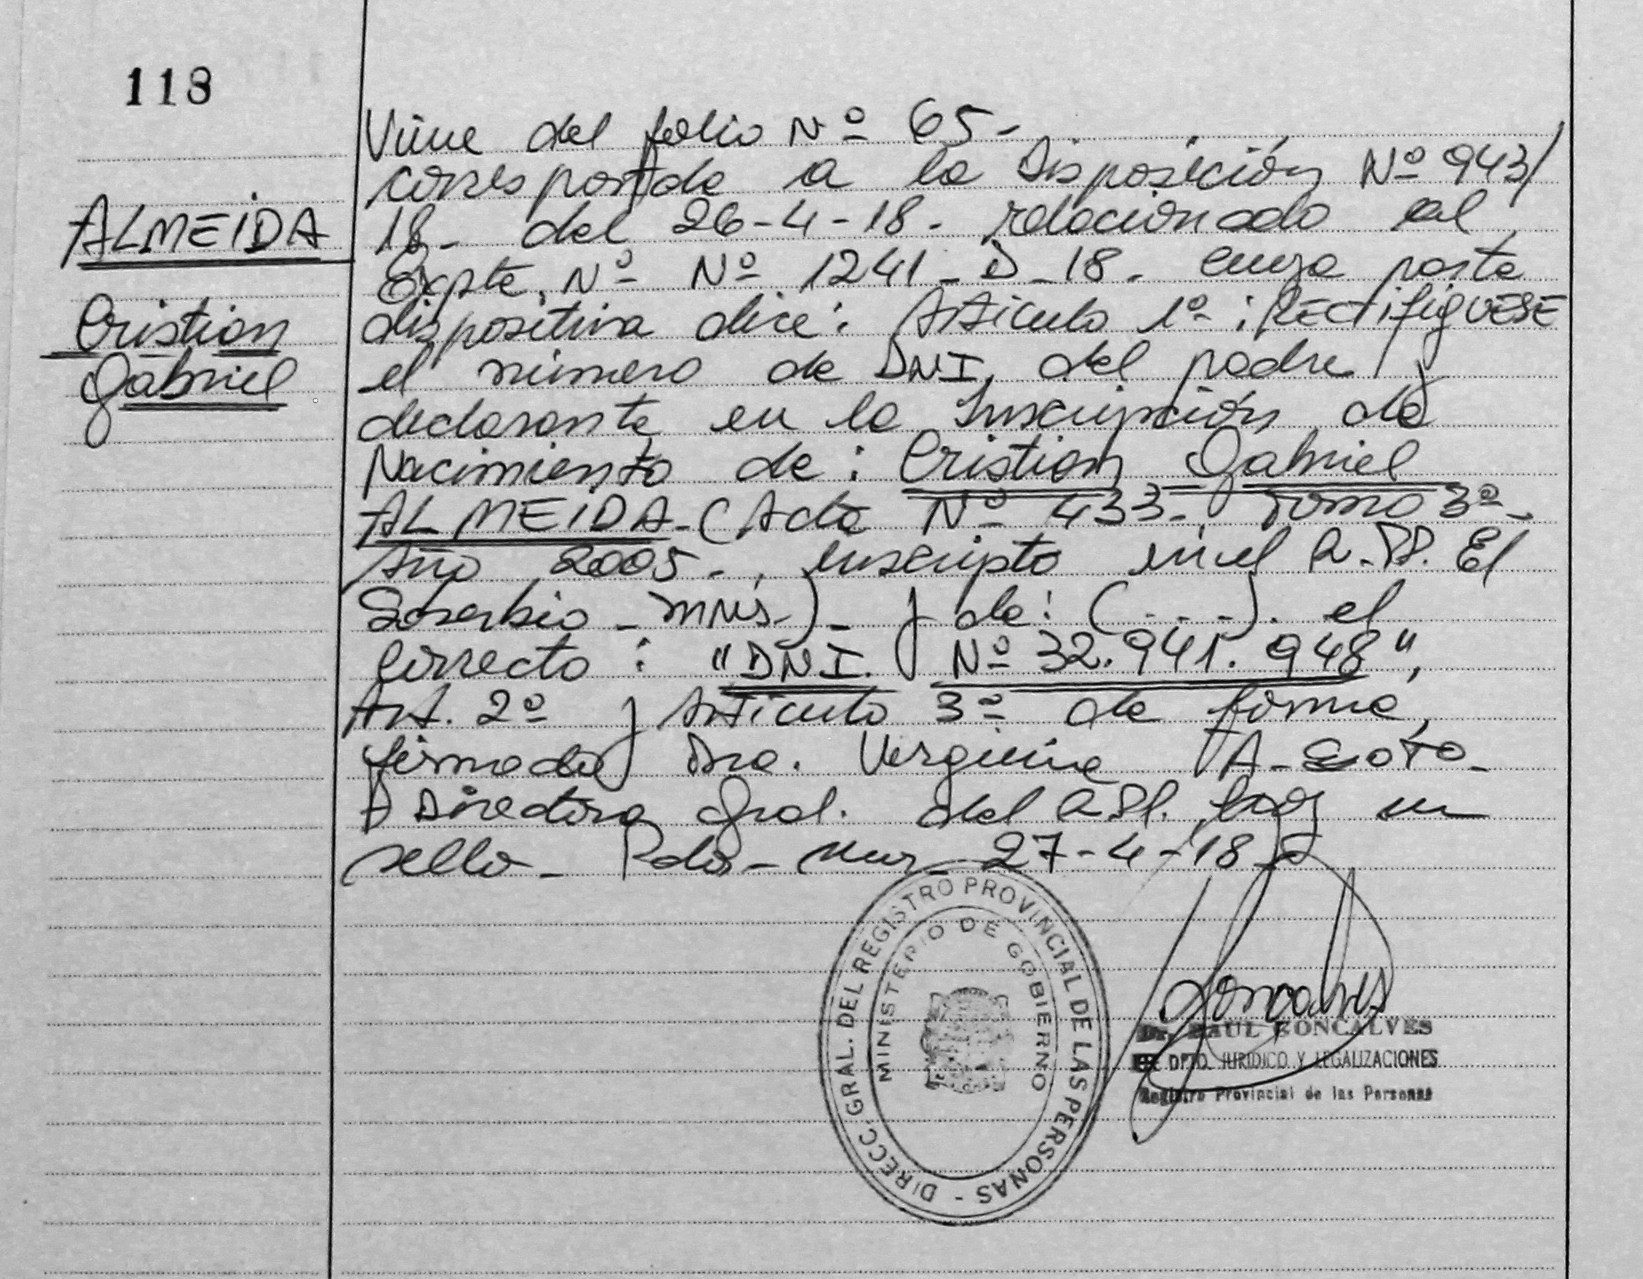 118
Viene del folio Nº 65-
corresponde a la Disposición Nº 943/
ALMEIDA
18- del 26-4-18- relacionado al
Expte. Nº Nº 1241-D-18- cuya parte
Cristian
dispositiva dice: Artículo 1º: RECTifiqUESE
Gabriel
el número de DNI, del padre y
declarante en la Inscripción de
Nacimiento de: Cristian Gabriel
ALMEIDA-(Acta Nº 433- Tomo 3º-
Año 2005-, inscripto en el R.PP. El
Soberbio - MNS.)- y de: (....). el
Correcto: "DNI. Nº 32.941.948",
Art. 2º y Artículo 3º de forma,
firmado Dra. A-SOTO-
Directora Gral. del hay un
sello- Pdas- Mnes 27-4-18
DIRECC. GRAL. DEL REGISTRO PROVINCIAL DE LAS PERSONAS -
MINISTERIO DE GOBIERNO
Goncalves
Dr. RAUL GONCALVES
DPTO. JURIDICO Y LEGALIZACIONES
Registro Provincial de las Personas